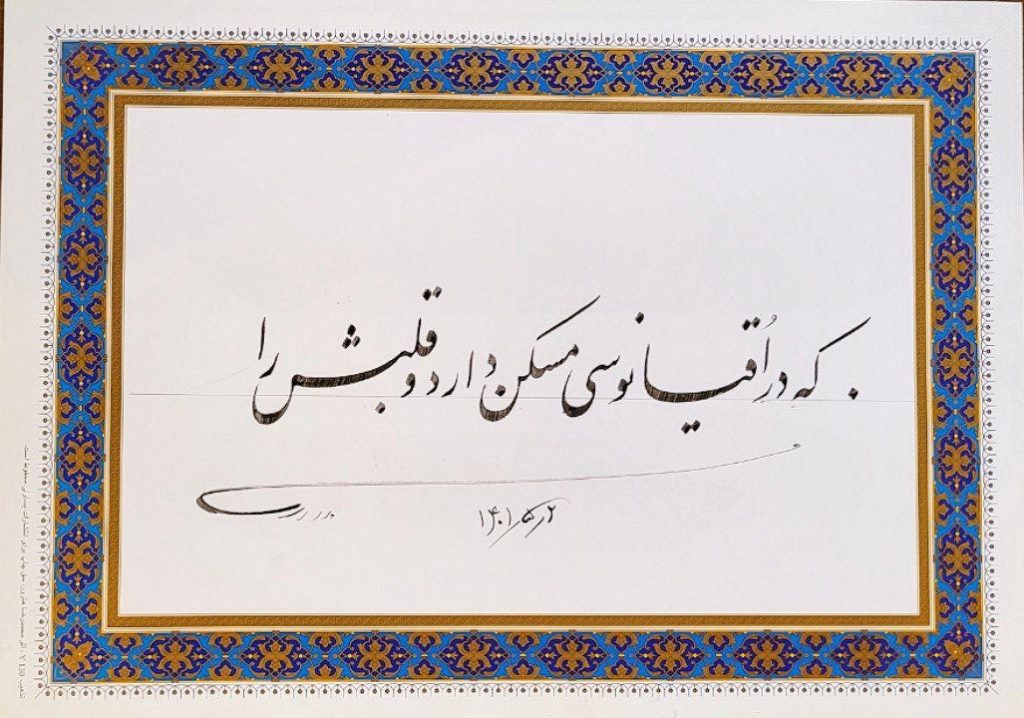 که در اُقیانوسی مسکن دارد و قلبش را
۱۴۰۱/۵/۲